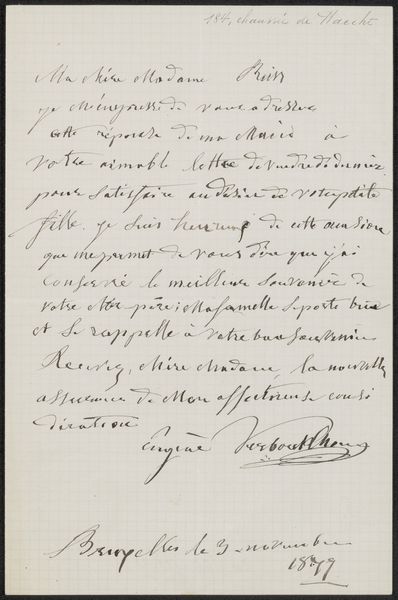 184, chaussée de Haecht
Ma chère Madame
je m'empresse de vous adresser
cette réponse de ma Mairie à
votre aimable lettre de vendredi dernier
pour satisfaire au désir de votre petite
fille. je suis heureux de cette occasion
qui me permet de vous dire que j'ai
conservé le meilleur souvenir de
votre cher père; Ma famille se porte bien
et se rappelle à votre bon souvenir
Recevez, chère Madame, la nouvelle
assurance de Mon affectueuse consi
dération
Eugène Verboeckhoven
Bruxelles le 3 novembre
1879